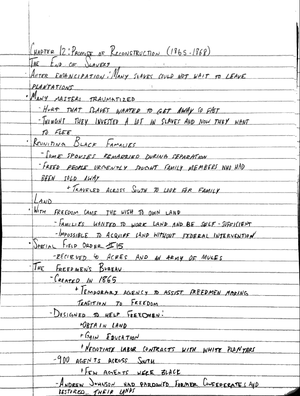 Chapter 12: Promise of Reconstruction (1865-1868)
The End of Slavery
- After emancipation: Many slaves could not wait to leave
plantations
- Many masters traumatized
- Hurt that slaves wanted to get away so fast
- Thought they invested a lot in slaves and now they want
to flee
- Reuniting Black Families
- Some spouses remarried during separation
- Freed people urgently sought family members who had
been sold away
+ Traveled across South to look for family
Land
- With freedom came the wish to own land
- Families wanted to work land and be self-sufficient
- Impossible to acquire land without federal intervention
- Special Field Order #15
- Recieved 40 acres and an army of mules
- The Freedmen's Bureau
- Created in 1865
+ Temporary agency to assist freedmen making
transition to freedom
- Designed to help freedmen:
+ Obtain land
+ Gain Education
+ Negotiate labor contracts with white planters
- 900 agents across South
+ Few agents were black
- Andrew Johnson had pardoned former Confederates and
restored their lands